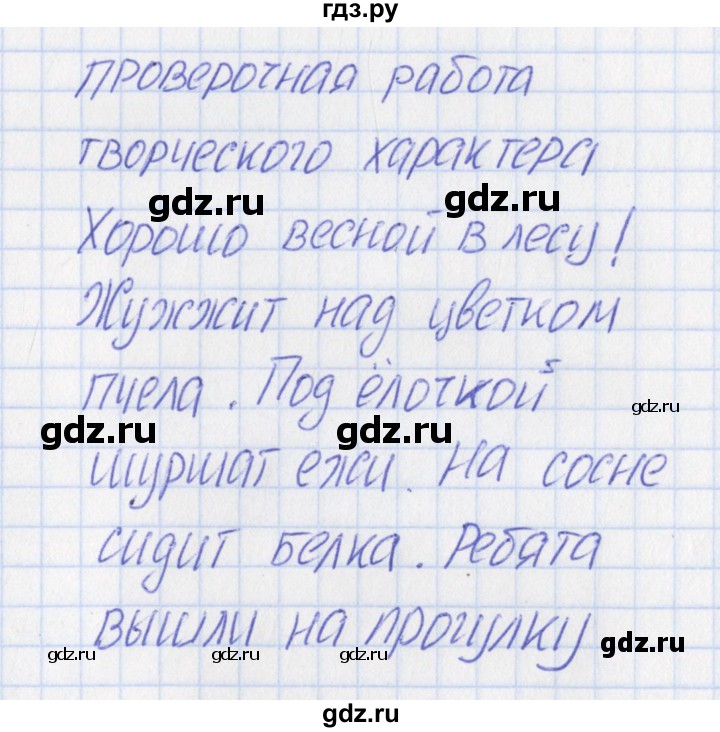 гдз.ру
проверочная работа
творческого характера
gdz.ru
gdz.ru
Хорошо весной в лесу!
Жужжит над цветком
пчела. Под ёлочкой
gdz.ru
gdz.ru
gdz.ru
шуршат ежи. На сосне
сидит белка. Ребята
вышли на прогулку
gdz.ru
gdz.ru
gdz.ru
gdz.ru
gdz.ru